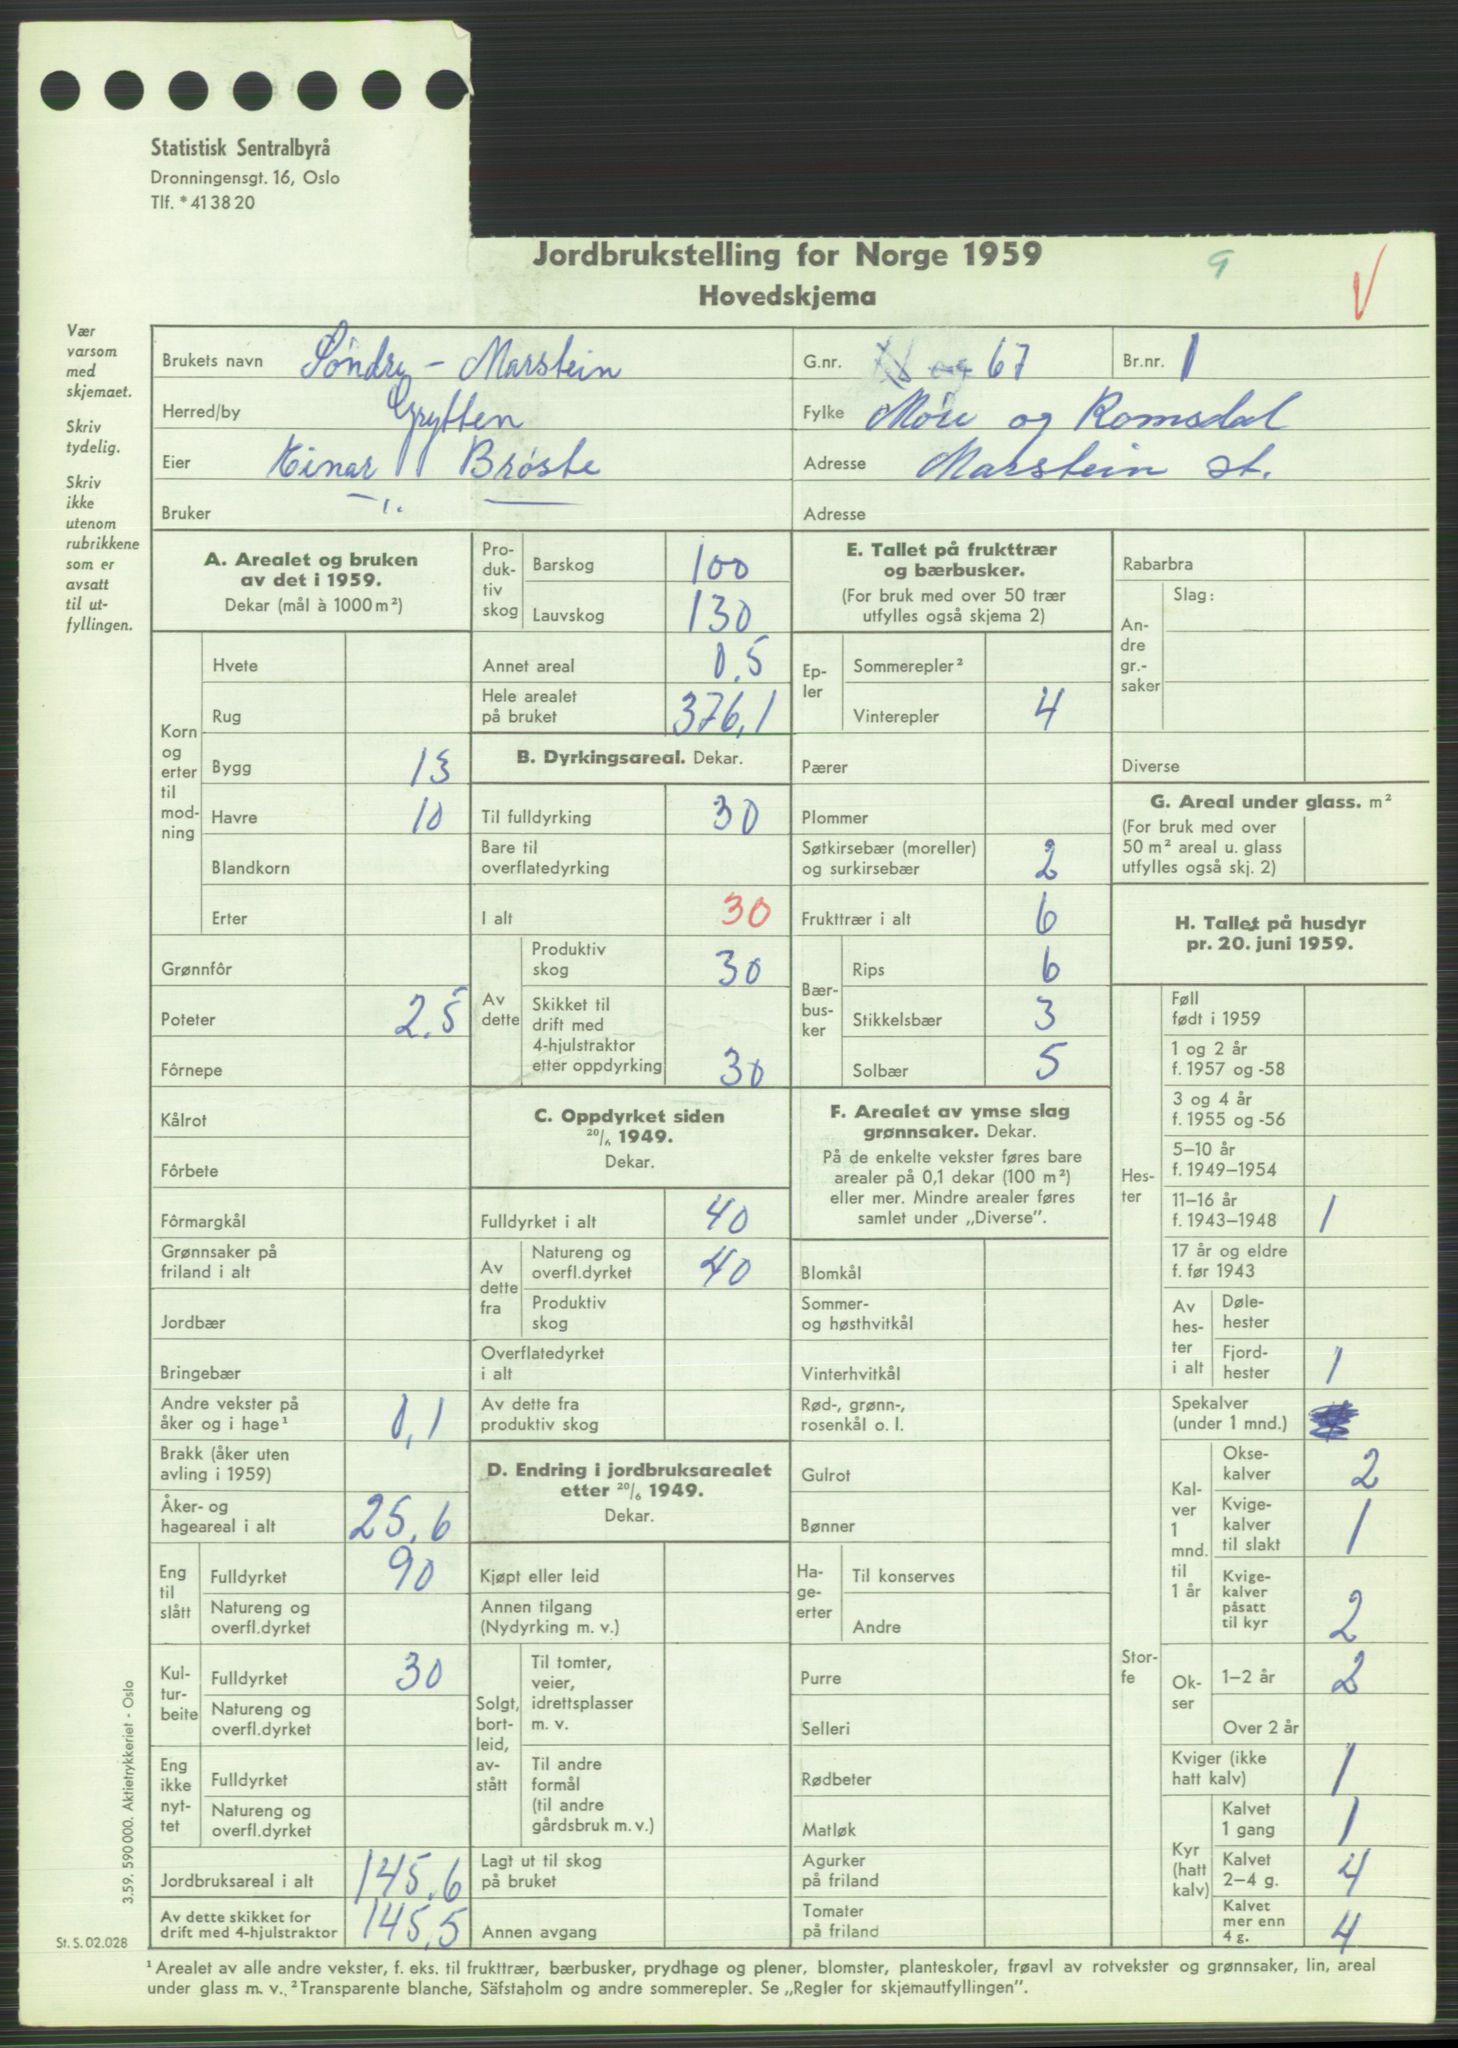 Statistisk Sentralbyrå
Dronningensgt. 16, Oslo
Tlf. * 41 38 20
Jordbrukstelling for Norge 1959
Hovedskjema
9
V
Vær
varsom
med
skjemaet.
Skriv
tydelig.
Skriv
ikke
utenom
rubrikkene
som er
avsatt
til ut-
fyllingen.
Brukets navn Søndre - Marstein G.nr. og 67 Br.nr. 1
Herred/by Grytten Fylke Møre og Romsdal
Eier Einar Brøste Adresse Marstein st.
Bruker —"— Adresse
A. Arealet og bruken
av det i 1959.
Dekar (mål à 1000 m²)
Korn
og
erter
til
mod-
ning
Hvete
Rug
Bygg 13
Havre 10
Blandkorn
Erter
Grønnfôr
Poteter 2.5
Fôrnepe
Kålrot
Fôrbete
Fôrmargkål
Grønnsaker på
friland i alt
Jordbær
Bringebær
Andre vekster på
åker og i hage¹ 0,1
Brakk (åker uten
avling i 1959)
Åker- og
hageareal i alt 25.6
Eng
til
slått
Fulldyrket 90
Natureng og
overfl.dyrket
Kul-
tur-
beite
Fulldyrket 30
Natureng og
overfl.dyrket
Eng
ikke
nyt-
tet
Fulldyrket
Natureng og
overfl.dyrket
Jordbruksareal i alt 145.6
Av dette skikket for
drift med 4-hjulstraktor 145.5
Pro-
duk-
tiv
skog
Barskog 100
Lauvskog 130
Annet areal 0.5
Hele arealet
på bruket 376,1
B. Dyrkingsareal. Dekar.
Til fulldyrking 30
Bare til
overflatedyrking
I alt 30
Av
dette
Produktiv
skog 30
Skikket til
drift med
4-hjulstraktor
etter oppdyrking 30
C. Oppdyrket siden
20/6 1949.
Dekar.
Fulldyrket i alt 40
Av
dette
fra
Natureng og
overfl.dyrket 40
Produktiv
skog
Overflatedyrket
i alt
Av dette fra
produktiv skog
D. Endring i jordbruksarealet
etter 20/6 1949.
Dekar.
Kjøpt eller leid
Annen tilgang
(Nydyrking m. v.)
Solgt,
bort-
leid,
av-
stått
Til tomter,
veier,
idrettsplasser
m. v.
Til andre
formål
(til andre
gårdsbruk m. v.)
Lagt ut til skog
på bruket
Annen avgang
E. Tallet på frukttrær
og bærbusker.
(For bruk med over 50 trær
utfylles også skjema 2)
Ep-
ler
Sommerepler²
Vinterepler 4
Pærer
Plommer
Søtkirsebær (moreller)
og surkirsebær 2
Frukttrær i alt 6
Bær-
bus-
ker
Rips 6
Stikkelsbær 3
Solbær 5
F. Arealet av ymse slag
grønnsaker. Dekar.
På de enkelte vekster føres bare
arealer på 0,1 dekar (100 m²)
eller mer. Mindre arealer føres
samlet under „Diverse”.
Blomkål
Sommer-
og høsthvitkål
Vinterhvitkål
Rød-, grønn-,
rosenkål o. l.
Gulrot
Bønner
Ha-
ge-
erter
Til konserves
Andre
Purre
Selleri
Rødbeter
Matløk
Agurker
på friland
Tomater
på friland
Rabarbra
An-
dre
gr.-
saker
Slag:
Diverse
G. Areal under glass. m²
(For bruk med over
50 m² areal u. glass
utfylles også skj. 2)
H. Tallet på husdyr
pr. 20. juni 1959.
Hes-
ter
Føll
født i 1959
1 og 2 år
f. 1957 og -58
3 og 4 år
f. 1955 og -56
5–10 år
f. 1949–1954
11–16 år
f. 1943–1948 1
17 år og eldre
f. før 1943
Av
hes-
ter
i alt
Døle-
hester
Fjord-
hester 1
Stor-
fe
Spekalver
(under 1 mnd.)
Kal-
ver
1
mnd.
til
1 år
Okse-
kalver 2
Kvige-
kalver
til slakt 1
Kvige-
kalver
påsatt
til kyr 2
Ok-
ser
1–2 år 2
Over 2 år
Kviger (ikke
hatt kalv) 1
Kyr
(hatt
kalv)
Kalvet
1 gang 1
Kalvet
2–4 g. 4
Kalvet
mer enn
4 g. 4
3.59. 590 000. Aktietrykkeriet - Oslo
St. S. 02.028
¹ Arealet av alle andre vekster, f. eks. til frukttrær, bærbusker, prydhage og plener, blomster, planteskoler, frøavl av rotvekster og grønnsaker, lin, areal
under glass m. v.. ² Transparente blanche, Säfstaholm og andre sommerepler. Se „Regler for skjemautfyllingen”.